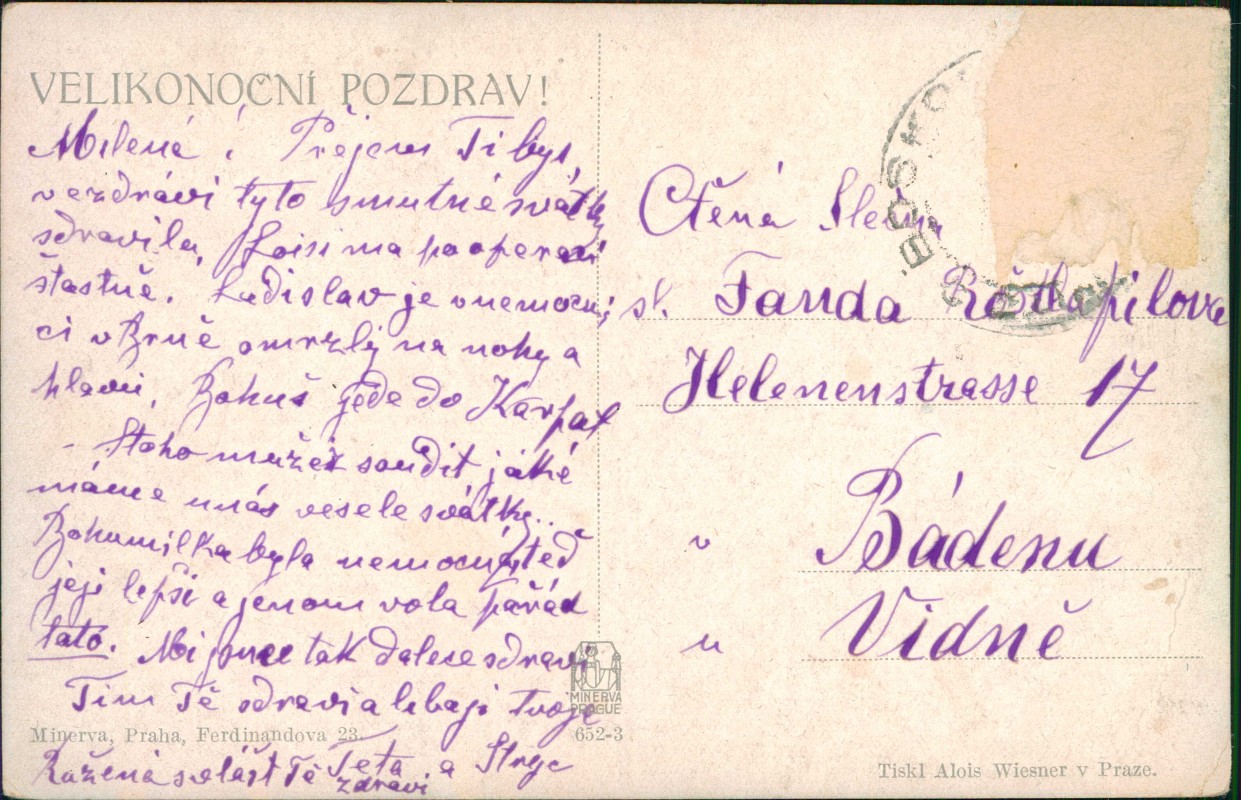 VELIKONOČNÍ POZDRAV!
Milená! Přejem Ti bys,
ve zdraví tyto smutné svátky
strávila, Loisi má po operaci
šťastně. Ladislav je v nemocni
ci v Brně omrzlý na nohy a
hlavu, Bohuš jede do Karpat
- z toho můžeš soudit, jaké
máme u nás veselé svátky..
Bohumilka byla nemocná, teď
jeji lepši a jenom volá pořád
tato. Mi jsme tak dalece zdravi
Tím Tě zdraví a libají tvoje
Teta a Strýc
Růžena zvlášť Tě zdraví
Minerva, Praha, Ferdinandova 23.
652-3
MINERVA
PRAGUE
BOSKO
Ctěná Slečna
sl. Fanda
Helenenstrasse 17
v Bádenu
u Vídně
Tiskl Alois Wiesner v Praze.